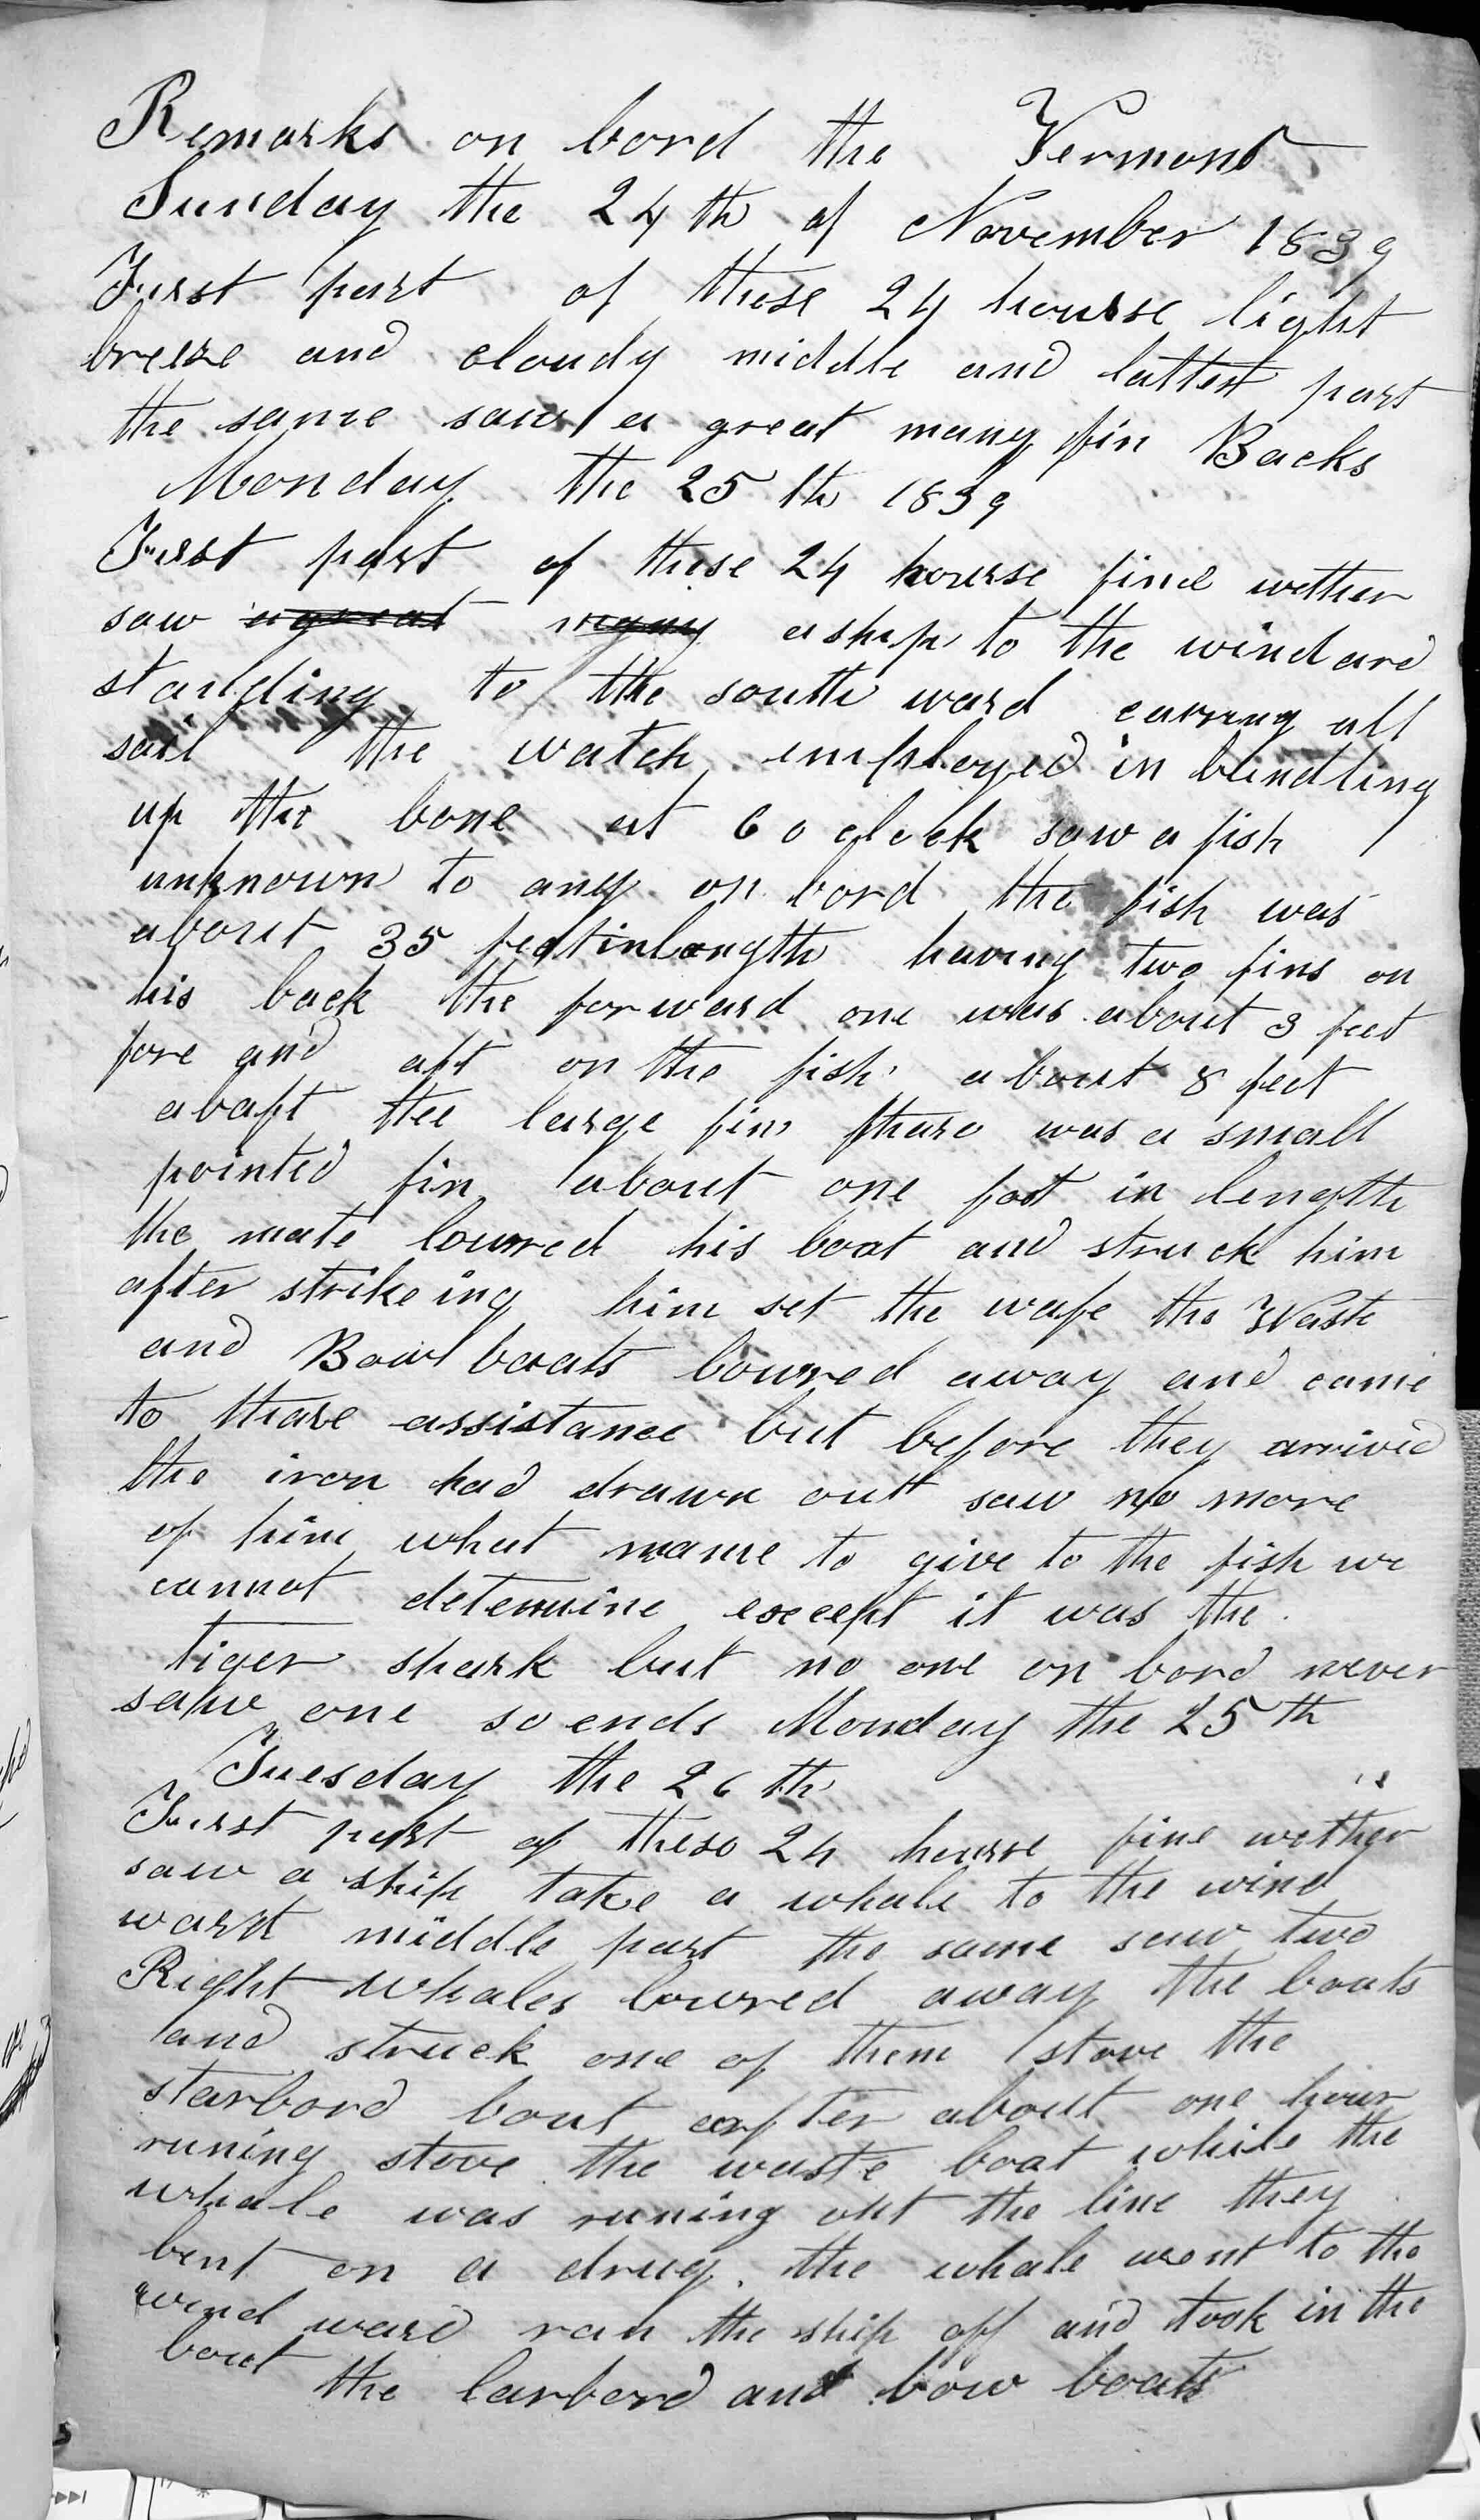 Remarks on bord the Vermont
Sunday the 24th of November 1839
First part of these 24 hourse light
breeze and cloudy middle and latter part
the same saw a great many fin Backs
Monday the 25th 1839
First part of these 24 hourse fine wether
saw a great many a ship to the windard
standing to the south ward carring all
sail the watch employed in bundling
up the bone at 6 o clock saw a fish
unknown to any on bord the fish was
about 35 feet in length having two fins on
his back the forward one was about 3 feet
fore and aft on the fish about 8 feet
abaft the large fin thare was a small
pointed fin about one foot in length
the mate lowred his boat and struck him
after strikeing him set the wafe the Waste
and Bow boats lowred away and came
to thare assistance but before they arrived
the iron had drawn out saw no more
of him what name to give to the fish we
cannot determine except it was the
tiger shark but no one on bord never
saw one so ends Monday the 25th
Tuesday the 26th
First part of these 24 hourse fine wether
saw a ship take a whale to the wind
ward middle part the same saw two
Right Whales lowred away the boats
and struck one of them stove the
starbord boat after about one hour
runing stove the waste boat while the
whale was runing out the line they
bent on a drug the whale went to the
wind ward ran the ship off and took in the
boat the larbord and bow boats